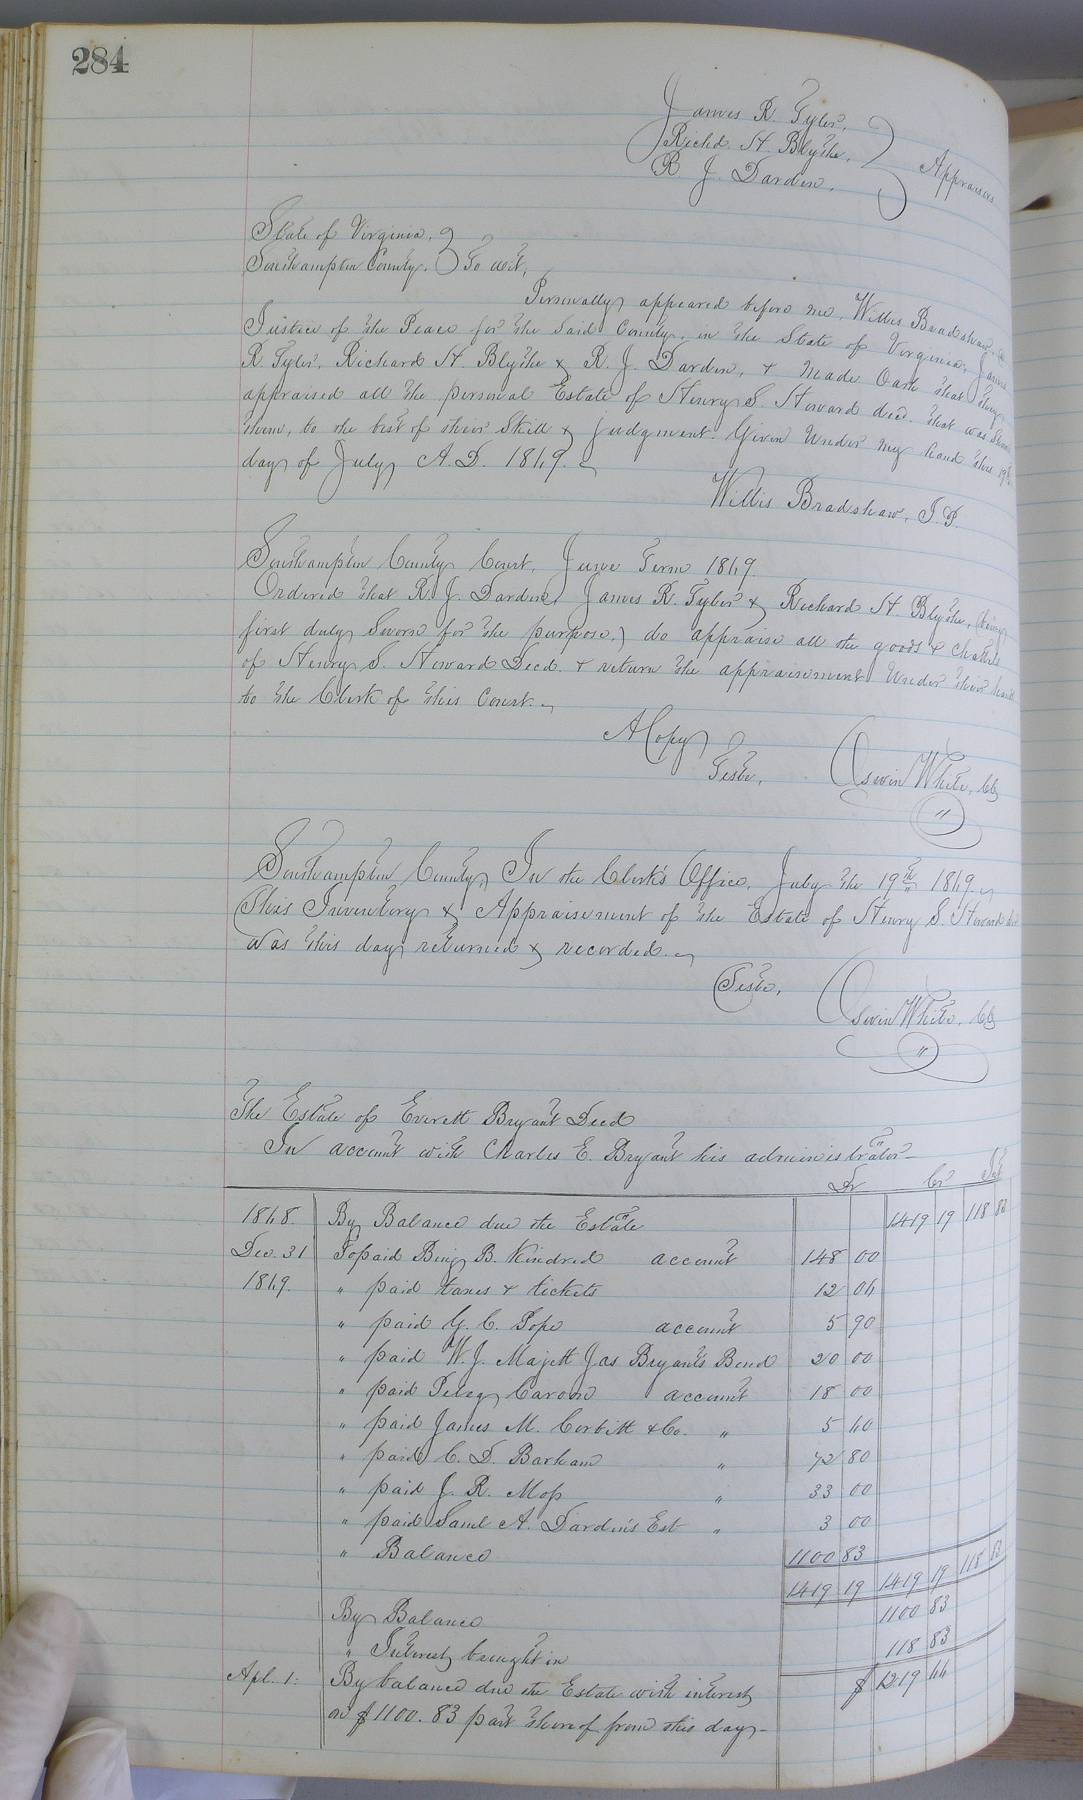 284
James R. Tyler,
Richd H. Blythe,
R. J. Darden,
Appraisers
State of Virginia,
Southampton County, To wit,
Personally appeared before me, Willis Bradshaw, a
Justice of the Peace for the Said County, in the State of Virginia, James
R. Tyler, Richard H. Blythe & R. J. Darden, & made Oath that they
appraised all the personal Estate of Henry S. Howard decd. that was shown
them, to the best of their Skill & judgment. Given Under my hand this 19th
day of July A.D. 1869.
Willis Bradshaw, J.P.
Southampton County Court, June Term 1869.
Ordered that R. J. Darden, James R. Tyler & Richard H. Blythe, (being
first duly Sworn for the purpose,) do appraise all the goods & chattels
of Henry S. Howard Decd. & return the appraisement Under their hands
to the Clerk of this Court.
A Copy
Teste,
Oswin White, Clk
Southampton County, In the Clerk's Office, July the 19th 1869.
This Inventory & Appraisement of the Estate of Henry S. Howard decd
was this day returned & recorded.
Teste,
Oswin White, Clk
The Estate of Everett Bryant Decd
In account with Charles E. Bryant his administrator
Dr Cr Int
1868. By Balance due the Estate 1419 19 118 83
Dec. 31 To paid Benj B. Kindred account 148 00
1869. " paid taxes & tickets 12 06
" paid G. C. Pope account 5 90
" paid W. J. Majett Jas Bryant's Bond 20 00
" paid account 18 00
" paid James M. Corbitt & Co. " 5 60
" paid C. D. Barham " 72 80
" paid J. R. Moss " 33 00
" paid Saml A. Darden's Est " 3 00
" Balance 1100 83
1419 19 1419 19 118 83
By Balance 1100 83
" Interest brought in 118 83
Apl. 1. By balance due the Estate with interest $1219 66
on $1100.83 part thereof from this day